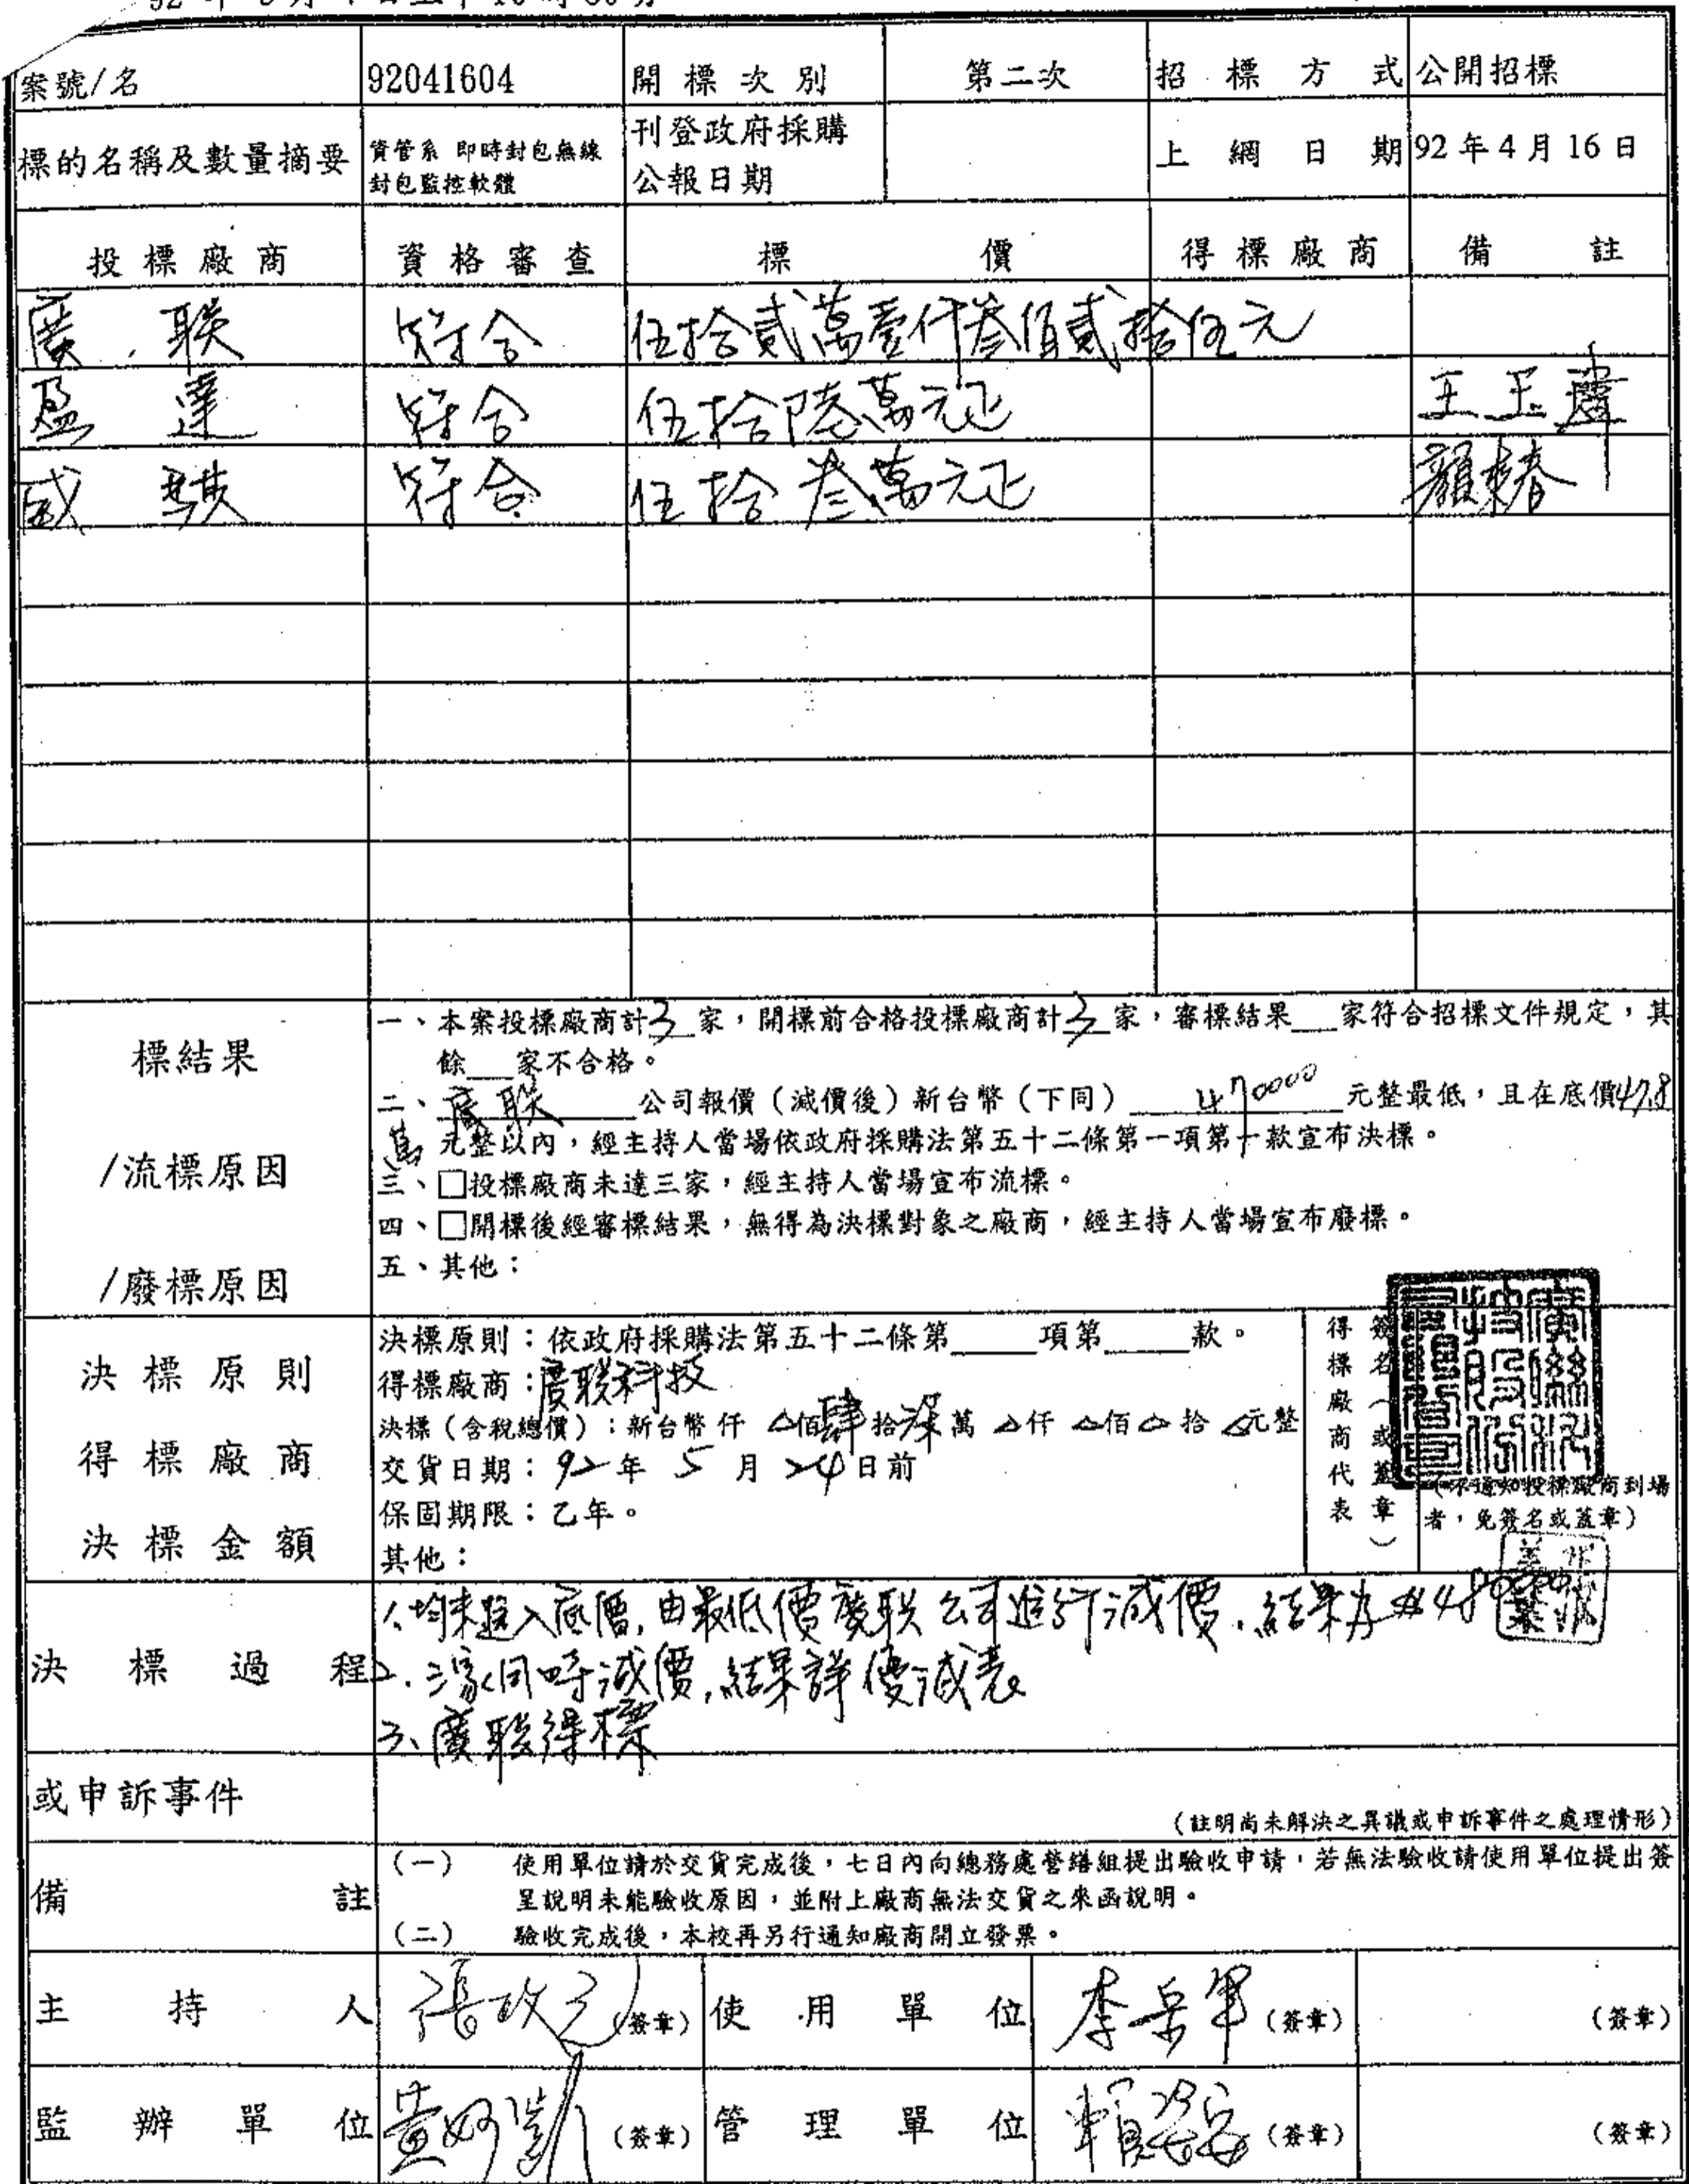 案號/名 92041604 開標次別 第二次 招標方式 公開招標
標的名稱及數量摘要 資管系 即時封包無線封包監控軟體 刊登政府採購公報日期 上網日期 92年4月16日
投標廠商 資格審查 標價 得標廠商 備註
廣聯 符合 伍拾貳萬壹仟叁佰貳拾伍元
盈達 符合 伍拾陸萬元正 王玉
威騏 符合 伍拾叁萬元正
標結果
/流標原因
/廢標原因
一、本案投標廠商計3家，開標前合格投標廠商計3家，審標結果___家符合招標文件規定，其
餘___家不合格。
二、廣聯公司報價（減價後）新台幣（下同）470000元整最低，且在底價47.8
萬元整以內，經主持人當場依政府採購法第五十二條第一項第一款宣布決標。
三、□投標廠商未達三家，經主持人當場宣布流標。
四、□開標後經審標結果，無得為決標對象之廠商，經主持人當場宣布廢標。
五、其他：
決標原則
得標廠商
決標金額
決標原則：依政府採購法第五十二條第____項第____款。
得標廠商：廣聯科技
決標（含稅總價）：新台幣仟 △佰肆拾柒萬 △仟 △佰 △拾 △元整
交貨日期：92年5月24日前
保固期限：乙年。
其他：
得標廠商代表
簽名（或蓋章）
（不通知投標廠商到場
者，免簽名或蓋章）
決標過程
1、均未進入底價，由最低價廣聯公司進行減價，結果為
2、三家同時減價，結果詳優減表
3、廣聯得標
或申訴事件
（註明尚未解決之異議或申訴事件之處理情形）
備註
（一） 使用單位請於交貨完成後，七日內向總務處營繕組提出驗收申請，若無法驗收請使用單位提出簽
呈說明未能驗收原因，並附上廠商無法交貨之來函說明。
（二） 驗收完成後，本校再另行通知廠商開立發票。
主持人 （簽章） 使用單位 （簽章） （簽章）
監辦單位 （簽章） 管理單位 （簽章） （簽章）